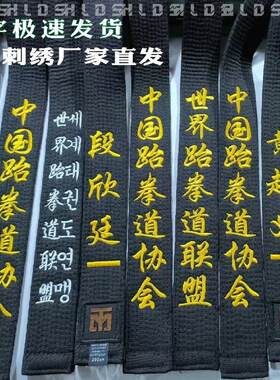 字极速发货
刺绣厂家直发
中国跆拳道
世界跆拳道联盟
세계태권도연맹
段欣廷一
中国跆拳道协会
世界跆拳道联盟
中国跆拳道协会